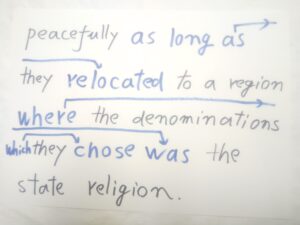 peacefully as long as
they relocated to a region
where the denominations
which they chose was the
state religion.